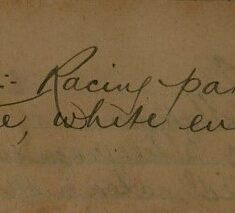 :- Racing pa
e, white en